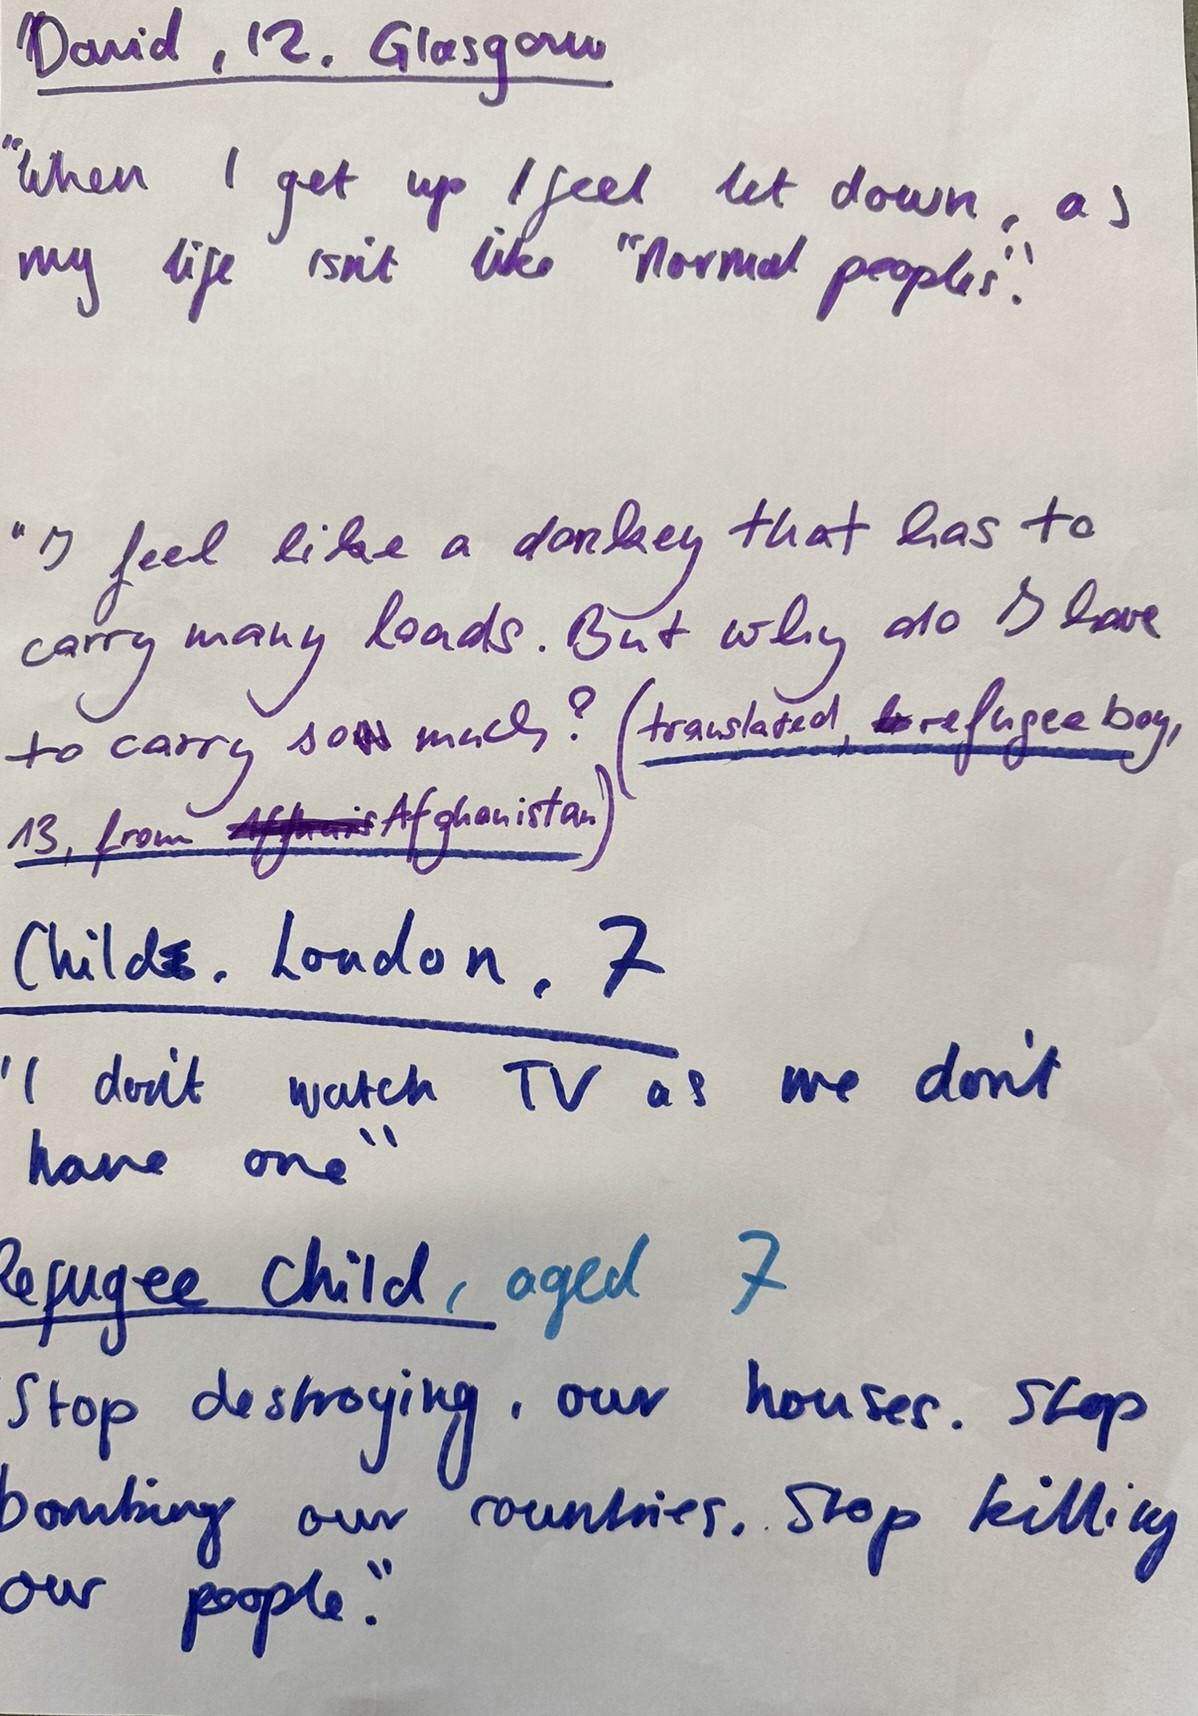 David, 12. Glasgow
"When I get up I feel let down, as
my life isn't like "Normal peoples".
"I feel like a donkey that has to
carry many loads. But why do I have
to carry so much? (translated, refugee boy,
13, from Afghanistan)
Child. London, 7
"I don't watch TV as we don't
have one"
Refugee Child, aged 7
"Stop destroying. our houses. Stop
bombing our countries. Stop killing
our people."